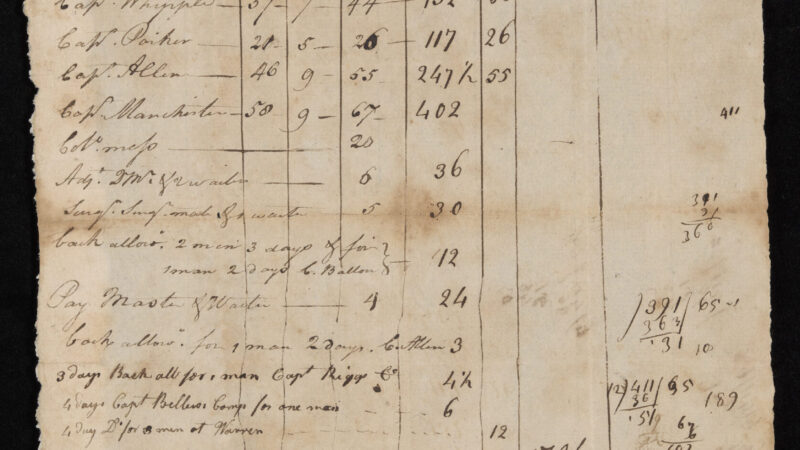 Capt. Whipple — 37 - 7 - 44 — 132
Capt. Parker — 21 - 5 - 26 — 117 26
Capt. Allen — 46 9 - 55 247½ 55
Capt. Manchester — 58 - 9 - 67 - 402
Col's mess — 20
Adjt. Qr Mr. & 2 waiters — 6 36
Surgn. Surgns. mate & 1 waiter — 5 30
back allow. 2 men 3 days & for
1 man 2 days C. Ballou 12
Pay Master & Waiter — 4 24
back allow. for 1 man 2 days. C. Allen 3
3 days Back all for 1 man Capt 4½
4 days Capt Bellows Comp for one man 6
4 day Do for men at Warren 12
411
391
31
360
391 65
363
31 10
12) 411 65
36
51
189